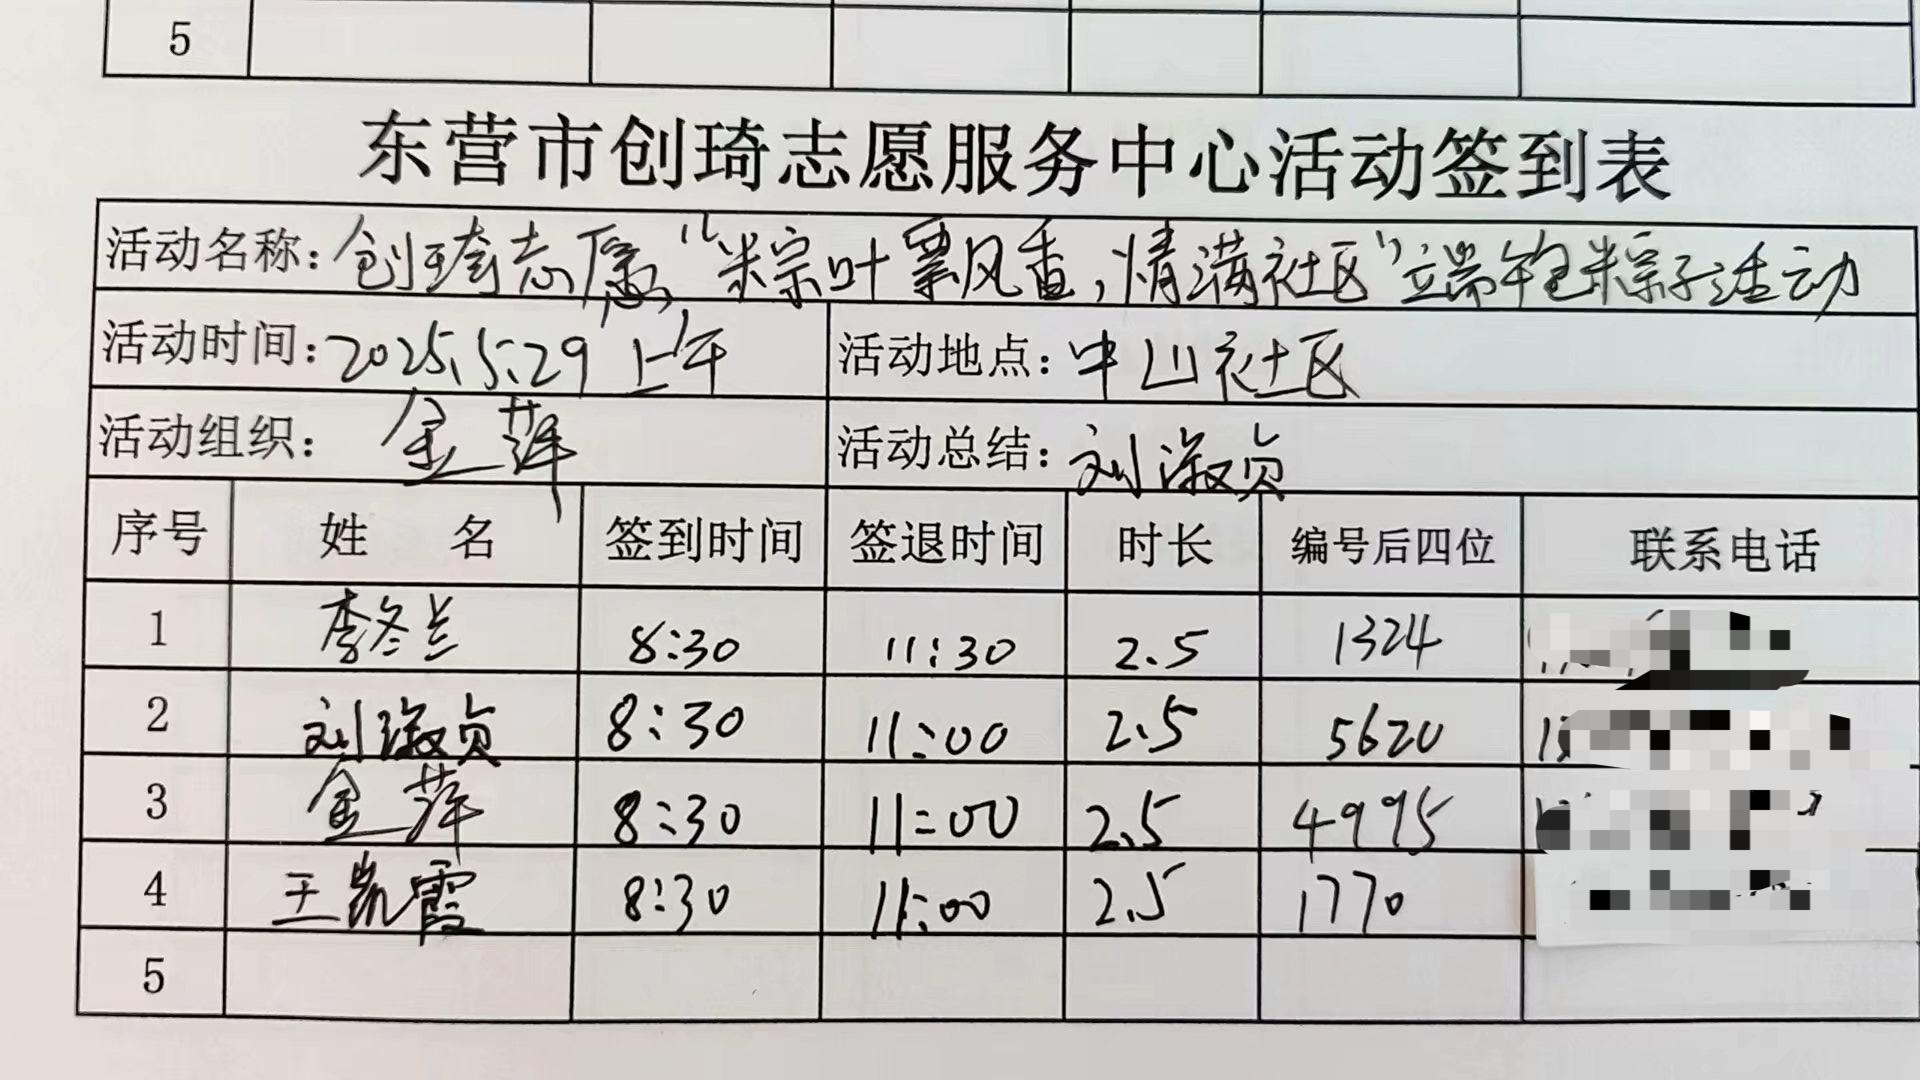 5
东营市创琦志愿服务中心活动签到表
活动名称：创琦志愿“粽叶飘香，情满社区”端午包粽子活动
活动时间：2025.5.29 上午 活动地点：中山社区
活动组织：金萍 活动总结：刘淑贞
序号 姓 名 签到时间 签退时间 时长 编号后四位 联系电话
1 李冬兰 8:30 11:30 2.5 1324
2 刘淑贞 8:30 11:00 2.5 5620
3 金萍 8:30 11:00 2.5 4995
4 王凯霞 8:30 11:00 2.5 1770
5